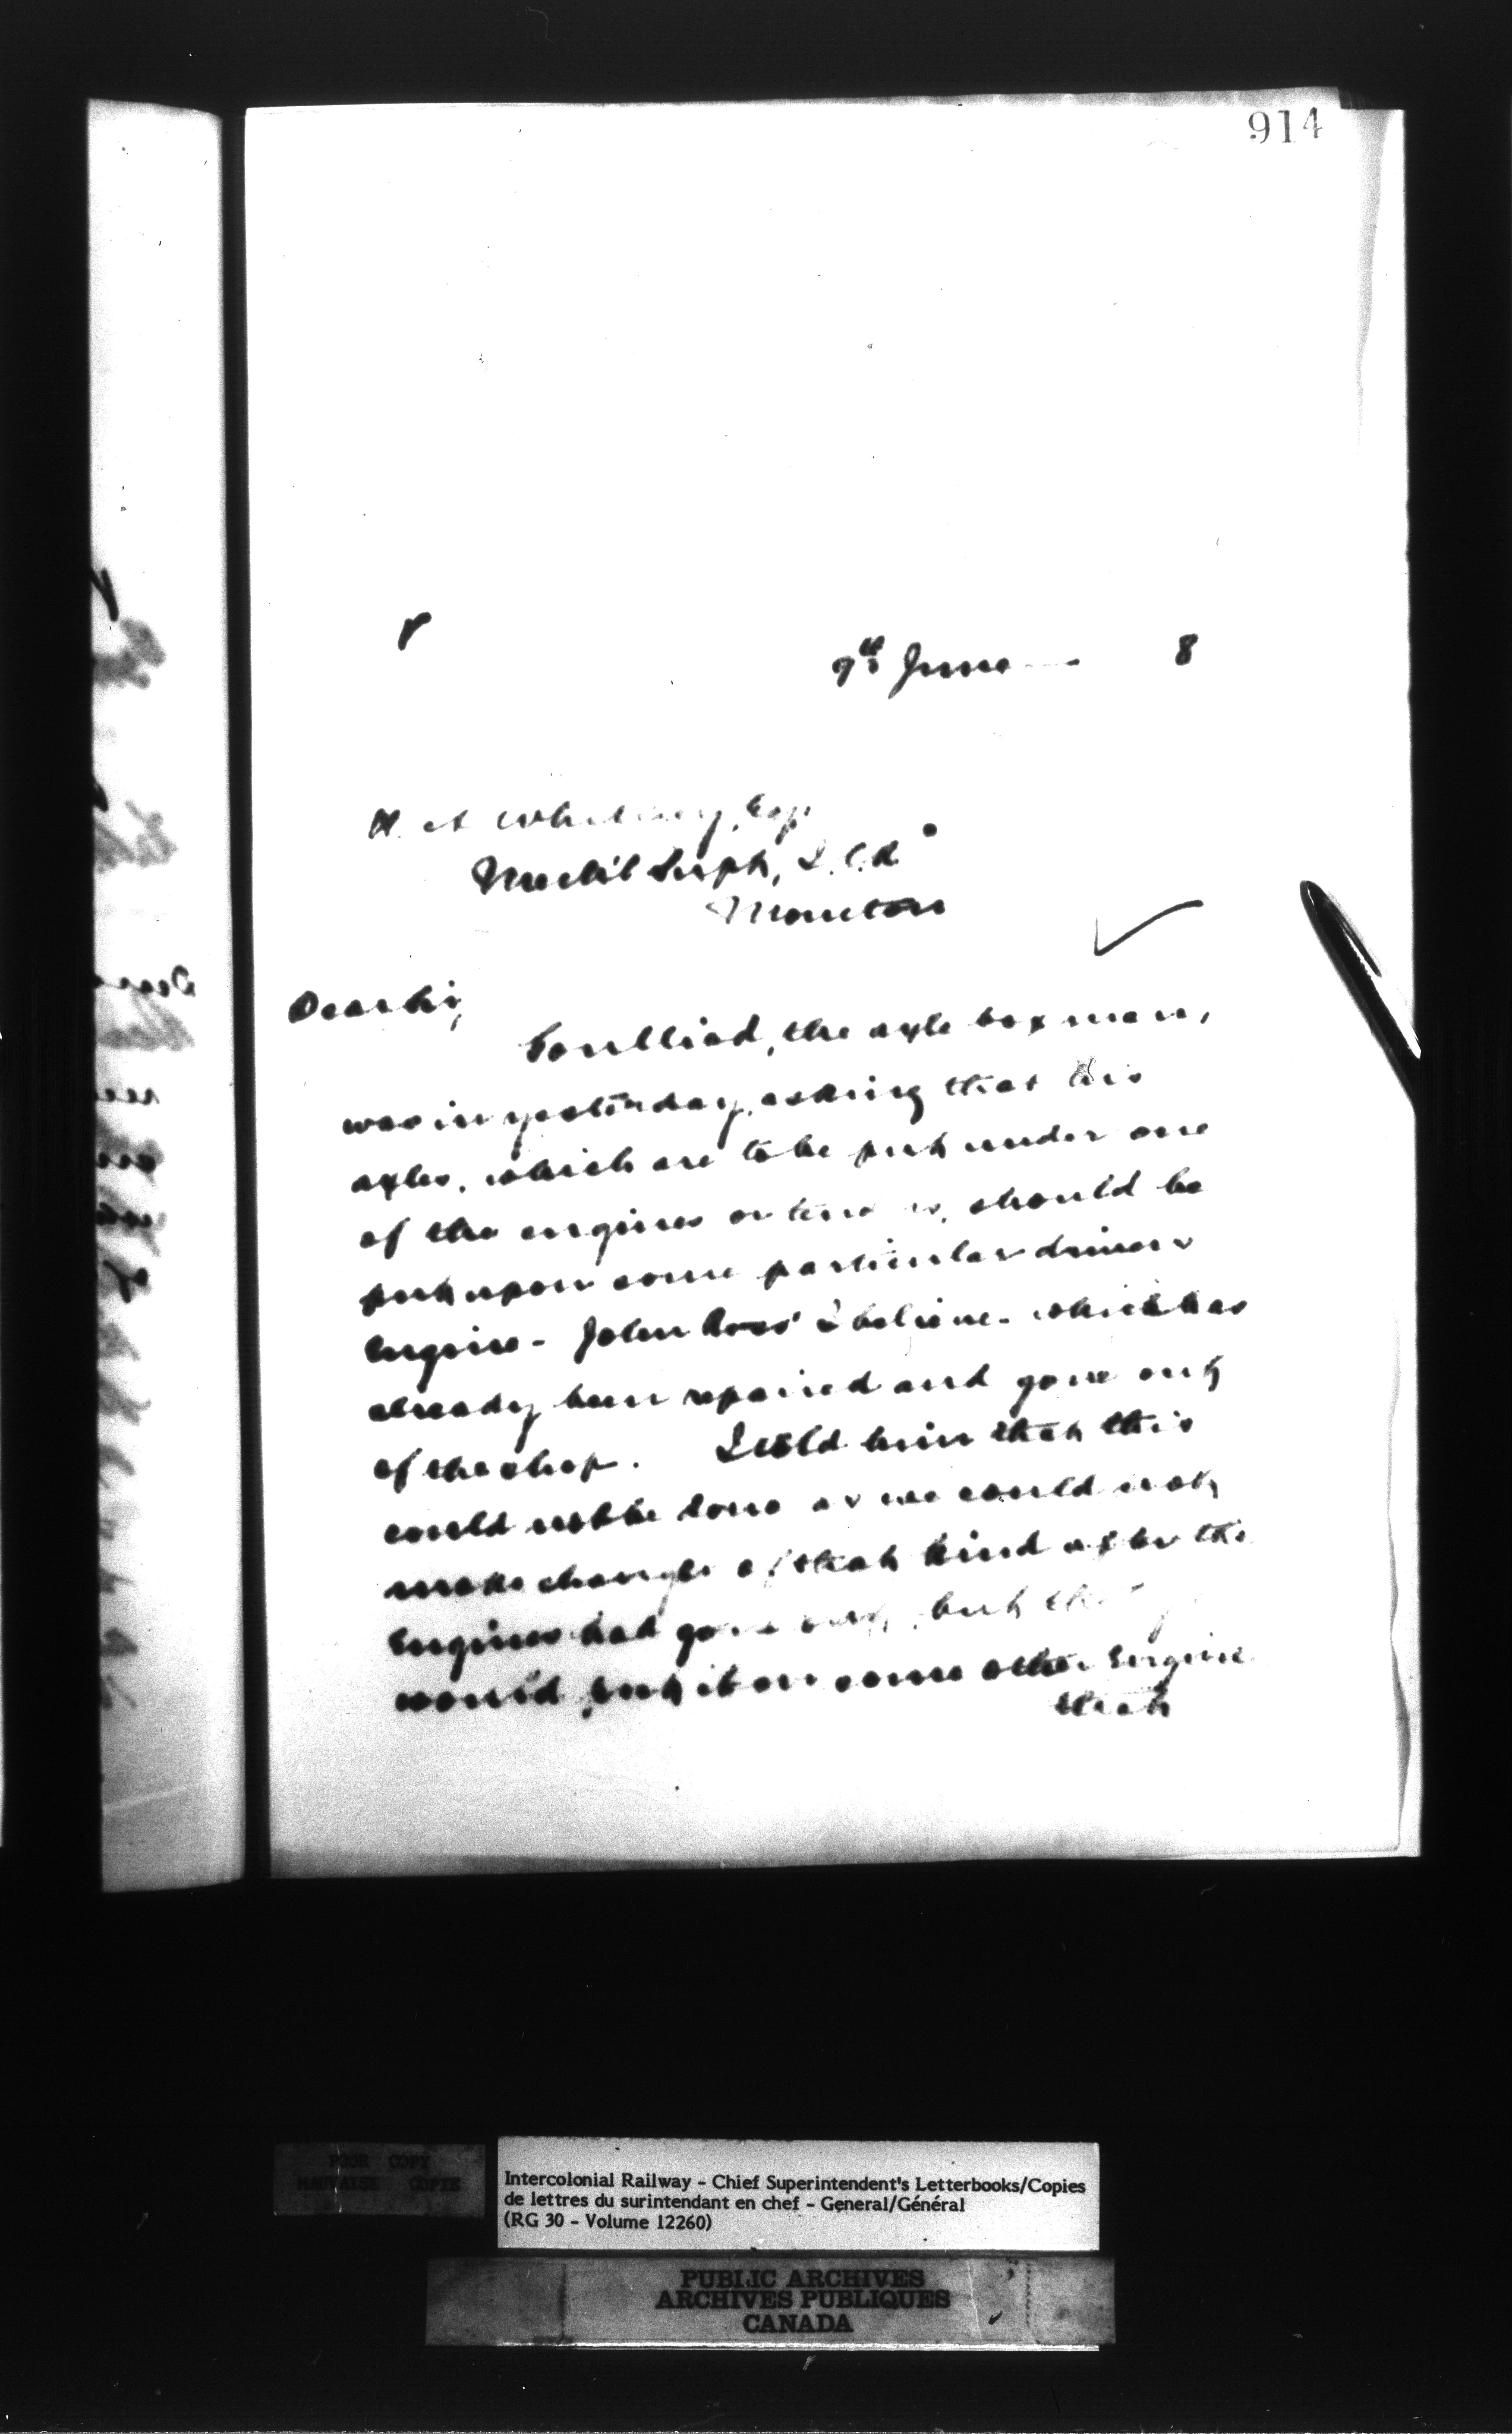 914
9th June 8
H. A Whitney, Esq.
Mech'l Supt, I.C.R.
Moncton
Dear Sir,
the axle box man,
was in yesterday, asking that his
axles, which are to be put under one
of the engines or tenders, should be
put upon some particular drivers
Engine - John Ross' I believe - which has
already been repaired and gone out
of the shop. I told him that this
could not be done as we could not
make changes of that kind after the
Engines had gone out, but that
would put it on some other Engine
that
POOR COPY
MAUVAISE COPIE
Intercolonial Railway - Chief Superintendent's Letterbooks/Copies
de lettres du surintendant en chef - General/Général
(RG 30 - Volume 12260)
PUBLIC ARCHIVES
ARCHIVES PUBLIQUES
CANADA